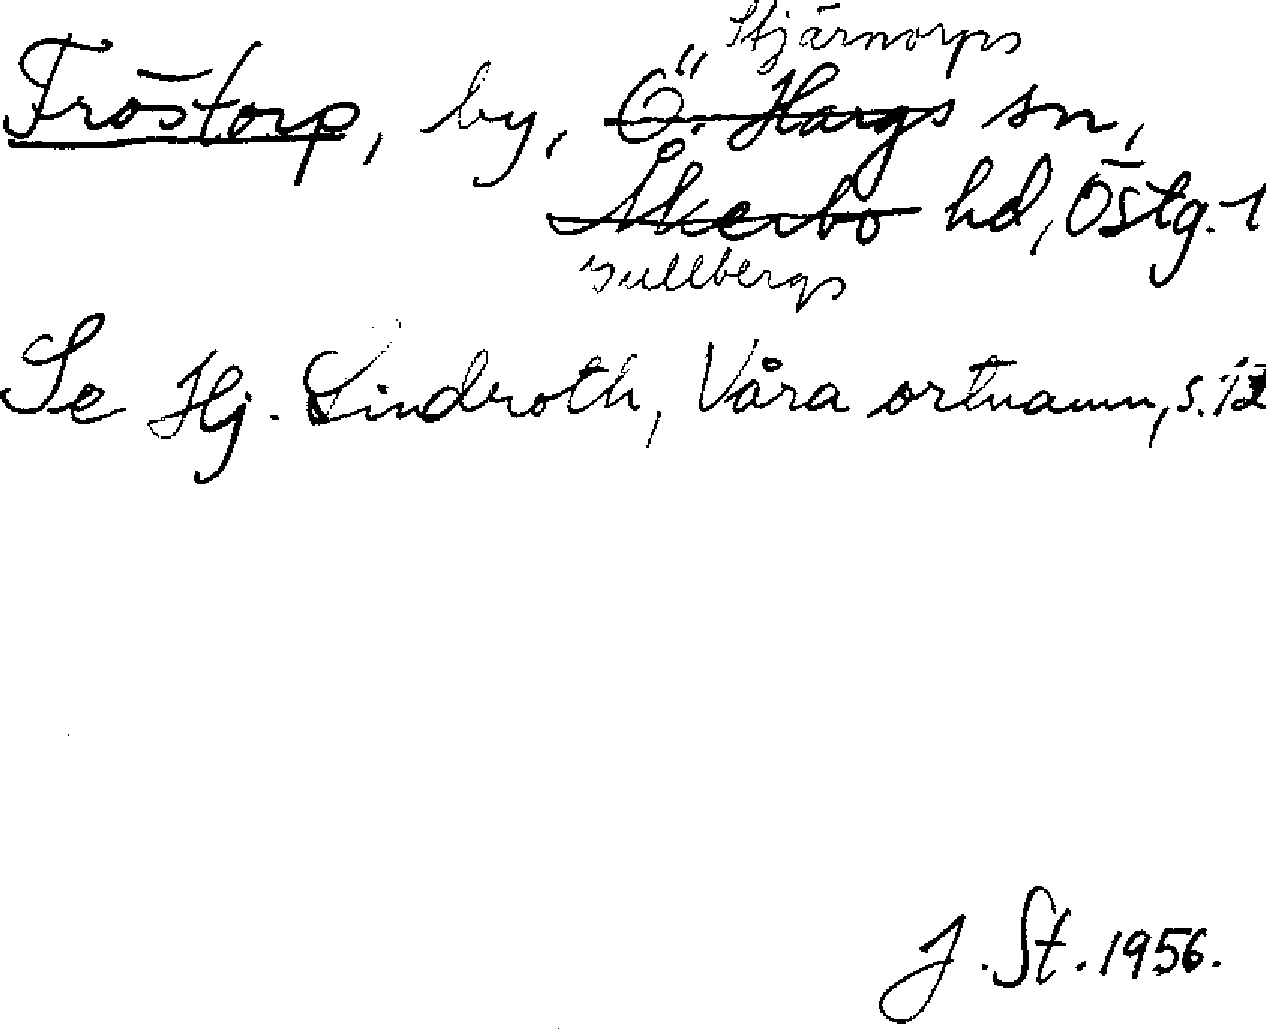 Stjärnorps
Fröstorp, by, Ö. Hargs sn,
Åkerbo hd, Östg. l
Gullbergs
Se Hj. Lindroth, Våra ortnamn, s. 12
J. St. 1956.